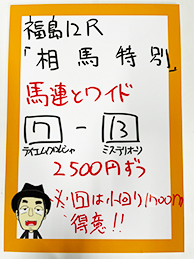 福島12R
「相馬特別」
馬連とワイド
7 - 13
ライエムハンジャ ミステリオーソ
2500円ずつ
※7は小回り1700m
得意!!